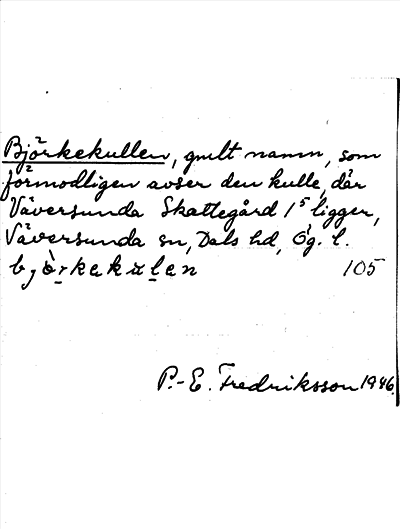 Björkekullen, gmlt namn, som
förmodligen avser den kulle, där
Väversunda Skattegård 1⁵ ligger,
Väversunda sn, Dals hd, Ög. l.
bjò̱rkekuḻen 105
P.-E. Fredriksson 1946.